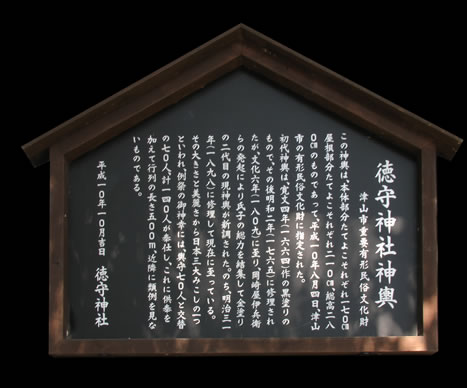 徳守神社神輿
津山市重要有形民俗文化財
この神輿は、本体部分たてよこそれぞれ一七〇㎝
屋根部分たてよこそれぞれ二一〇㎝、総高二八
〇㎝のものであって、平成一〇年八月四日、津山
市の有形民俗文化財に指定された。
初代神輿は、寛文四年(一六六四)作の黒塗りの
もので、その後明和二年(一七六五)に修理され
たが、文化六年(一八〇九)に至り、岡崎屋伊兵衛
らの発起により氏子の総力を結集して金塗り
の二代目の現神輿が新調された。のち、明治三一
年(一八九八)に修理して現在に至っている。
その大きさと美麗さから日本三大みこしの一つ
といわれ、例祭の御神幸には、輿守七〇人と交替
の七〇人、計一四〇人が奉仕し、これに供奉を
加えて行列の長さ五〇〇m、近隣に類例を見な
いものである。
平成一〇年一〇月吉日 徳守神社